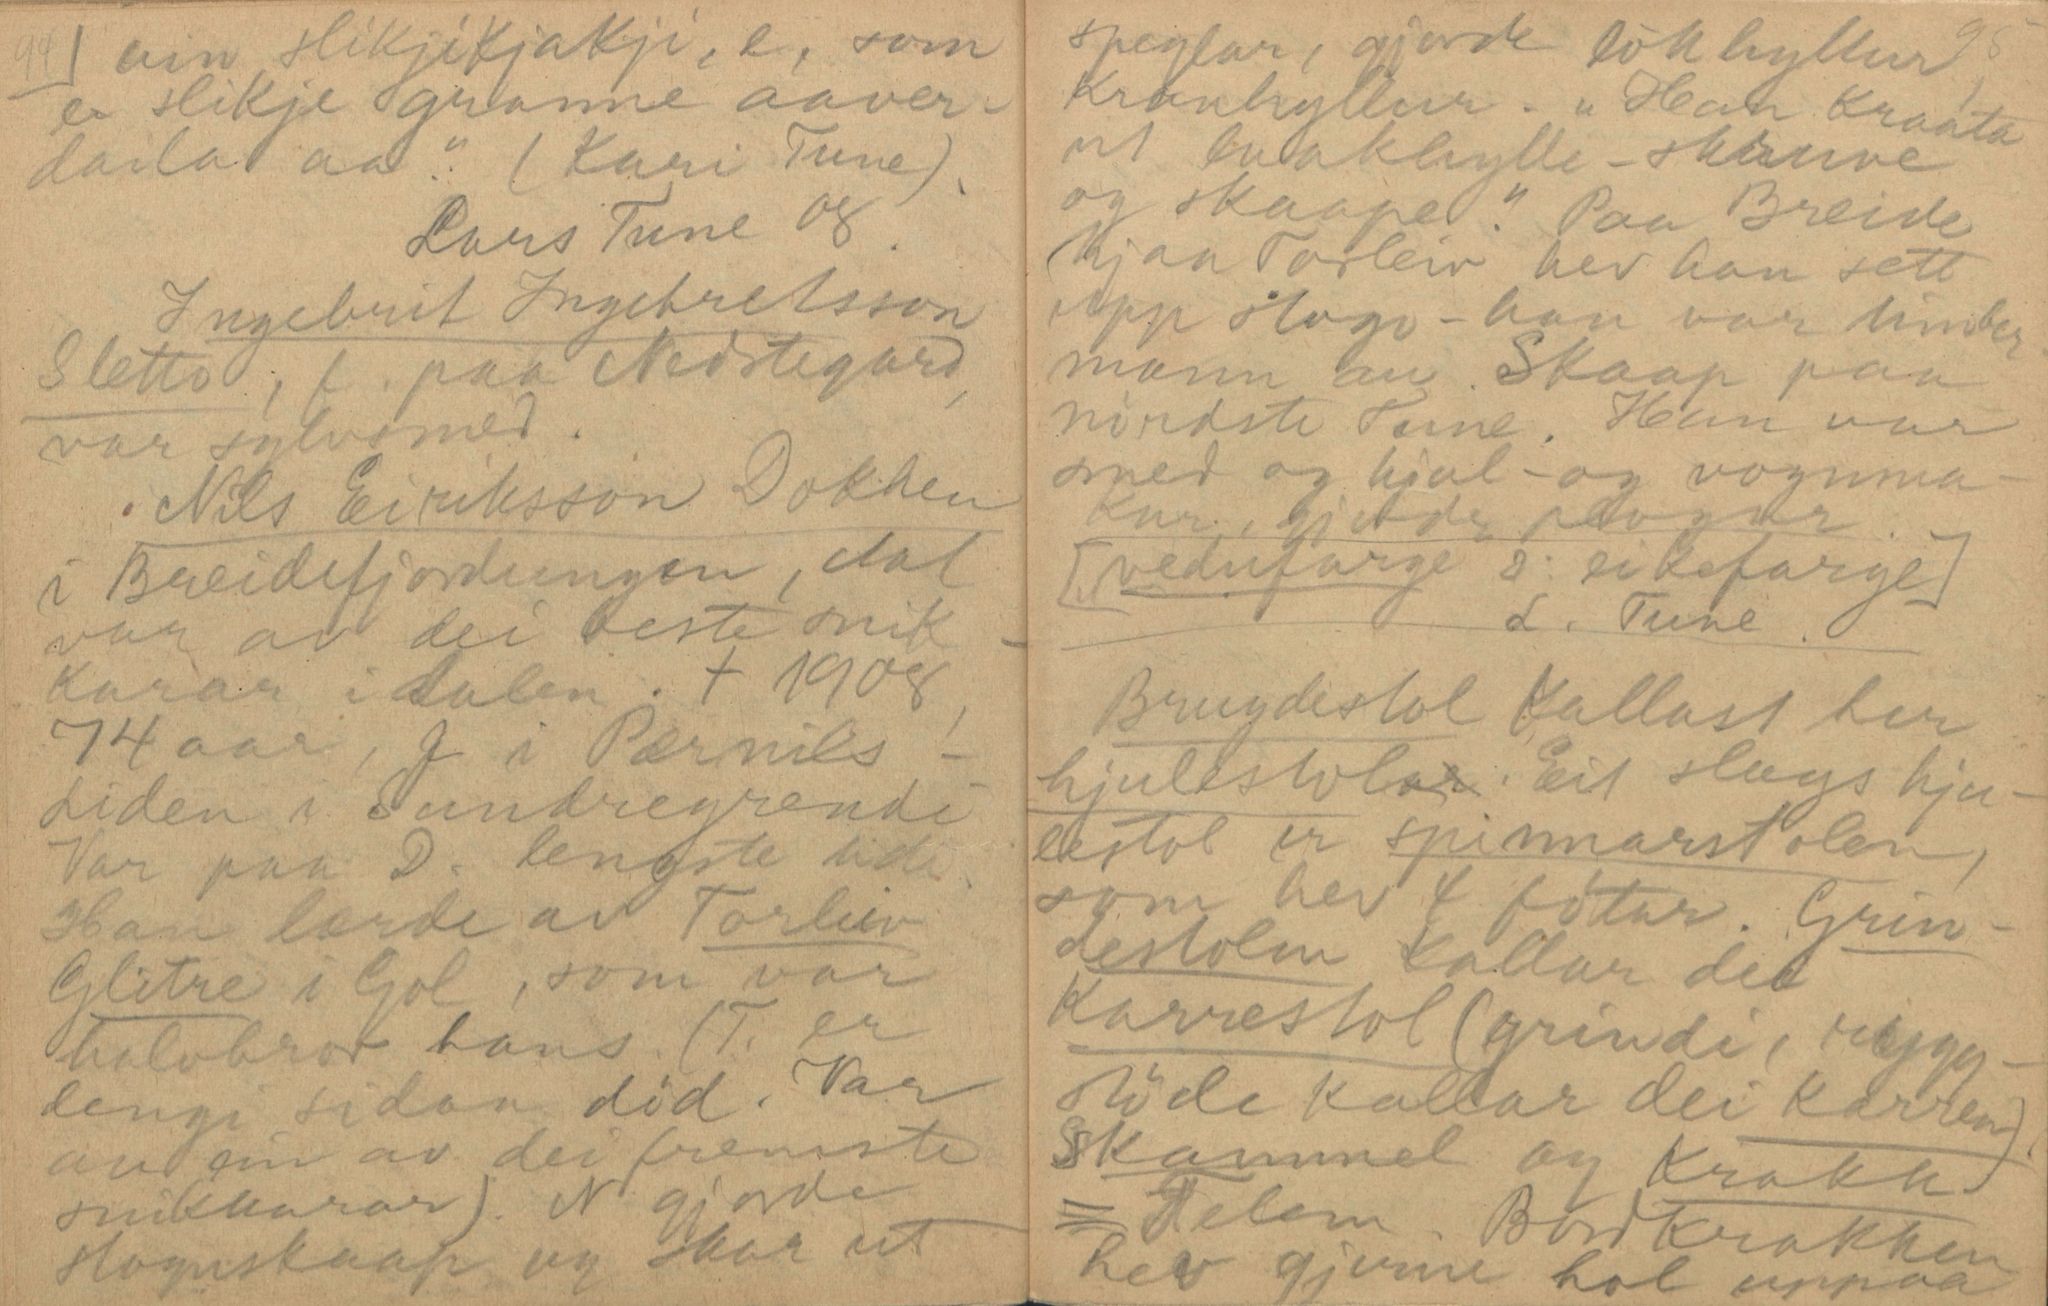 94] ein slikjikjakji, e, som
er slikje granne aaver-
daila aa". (Kari Tune).
Lars Tune 08.
Ingebrit Ingebretsson
Sletto, f. paa Nedstegard,
var sylvsmed.
Nils Eiriksson Dokken
i Breidefjordungen, Aal
var av dei beste snik-
karar i dalen. + 1908,
74 aar, g i Pernils-
liden i Sundregrendi
Var paa D. lengste tidi.
Han lærde av Torleiv
Glitre i Gol, som var
halvbror hans. (T. er
lengi sidan död. Var
au ein av dei fremste
snikkarar). N gjorde
stoguskaap og skar ut
95
speglar, gjorde
kranhyllur. "Han kraata
ut -skruve
og skaape". Paa Breide
hjaa Torleiv hev han sett
upp stogo - han var timber-
mann au. Skaap paa
nördste Tune. Han var
smed og hjul- og vognma-
kar, gjorde plogar.
[vedufarge ɔ: eikefarge]
L. Tune.
Brugdestol kallast her
hjulestolar. Eit slags hju-
lestol er spinnarstolen,
som hev 4 fötar. Grin-
destolen kallar dei
Karrestol (grindi, rygg-
stöde kallar dei karren).
Skammel og Krakk
= Telem. Bordkrakken
hev gjerne hol uppaa